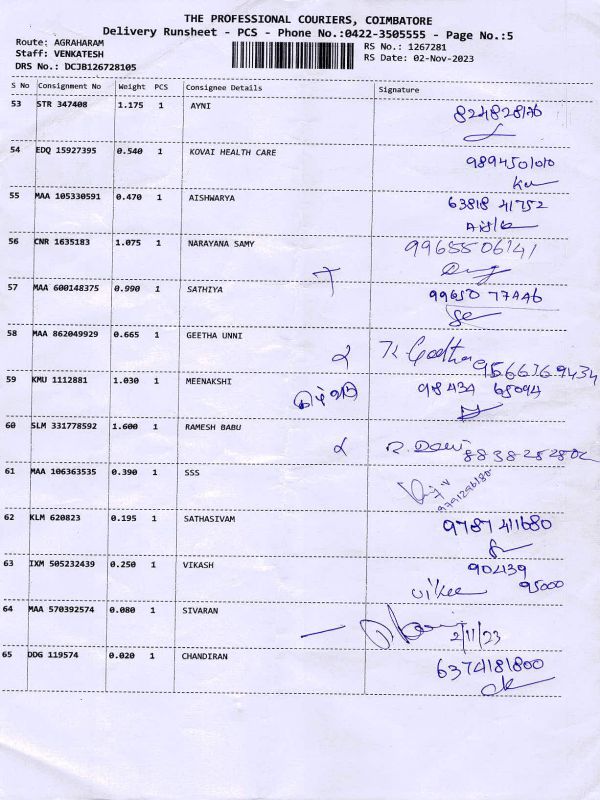 THE PROFESSIONAL COURIERS, COIMBATORE
Delivery Runsheet - PCS - Phone No.:0422-3505555 - Page No.:5
Route: AGRAHARAM
RS No.: 1267281
Staff: VENKATESH
RS Date: 02-Nov-2023
DRS No.: DCJB126728105
S No Consignment No Weight PCS Consignee Details Signature
53 STR 347408 1.175 1 AYNI
54 EDQ 15927395 0.540 1 KOVAI HEALTH CARE 9894501010
55 MAA 105330591 0.470 1 AISHWARYA 63818 41752
56 CNR 1635183 1.075 1 NARAYANA SAMY 9965506141
57 MAA 600148375 0.990 1 SATHIYA 99650 77446
58 MAA 862049929 0.665 1 GEETHA UNNI 9566369434
59 KMU 1112881 1.030 1 MEENAKSHI 98434 65094
60 SLM 331778592 1.600 1 RAMESH BABU
61 MAA 106363535 0.390 1 SSS 9791296180
62 KLM 620823 0.195 1 SATHASIVAM 9787 411680
63 IXM 505232439 0.250 1 VIKASH 904139
95000
64 MAA 570392574 0.080 1 SIVARAN 2/11/23
65 DDG 119574 0.020 1 CHANDIRAN 6374181800